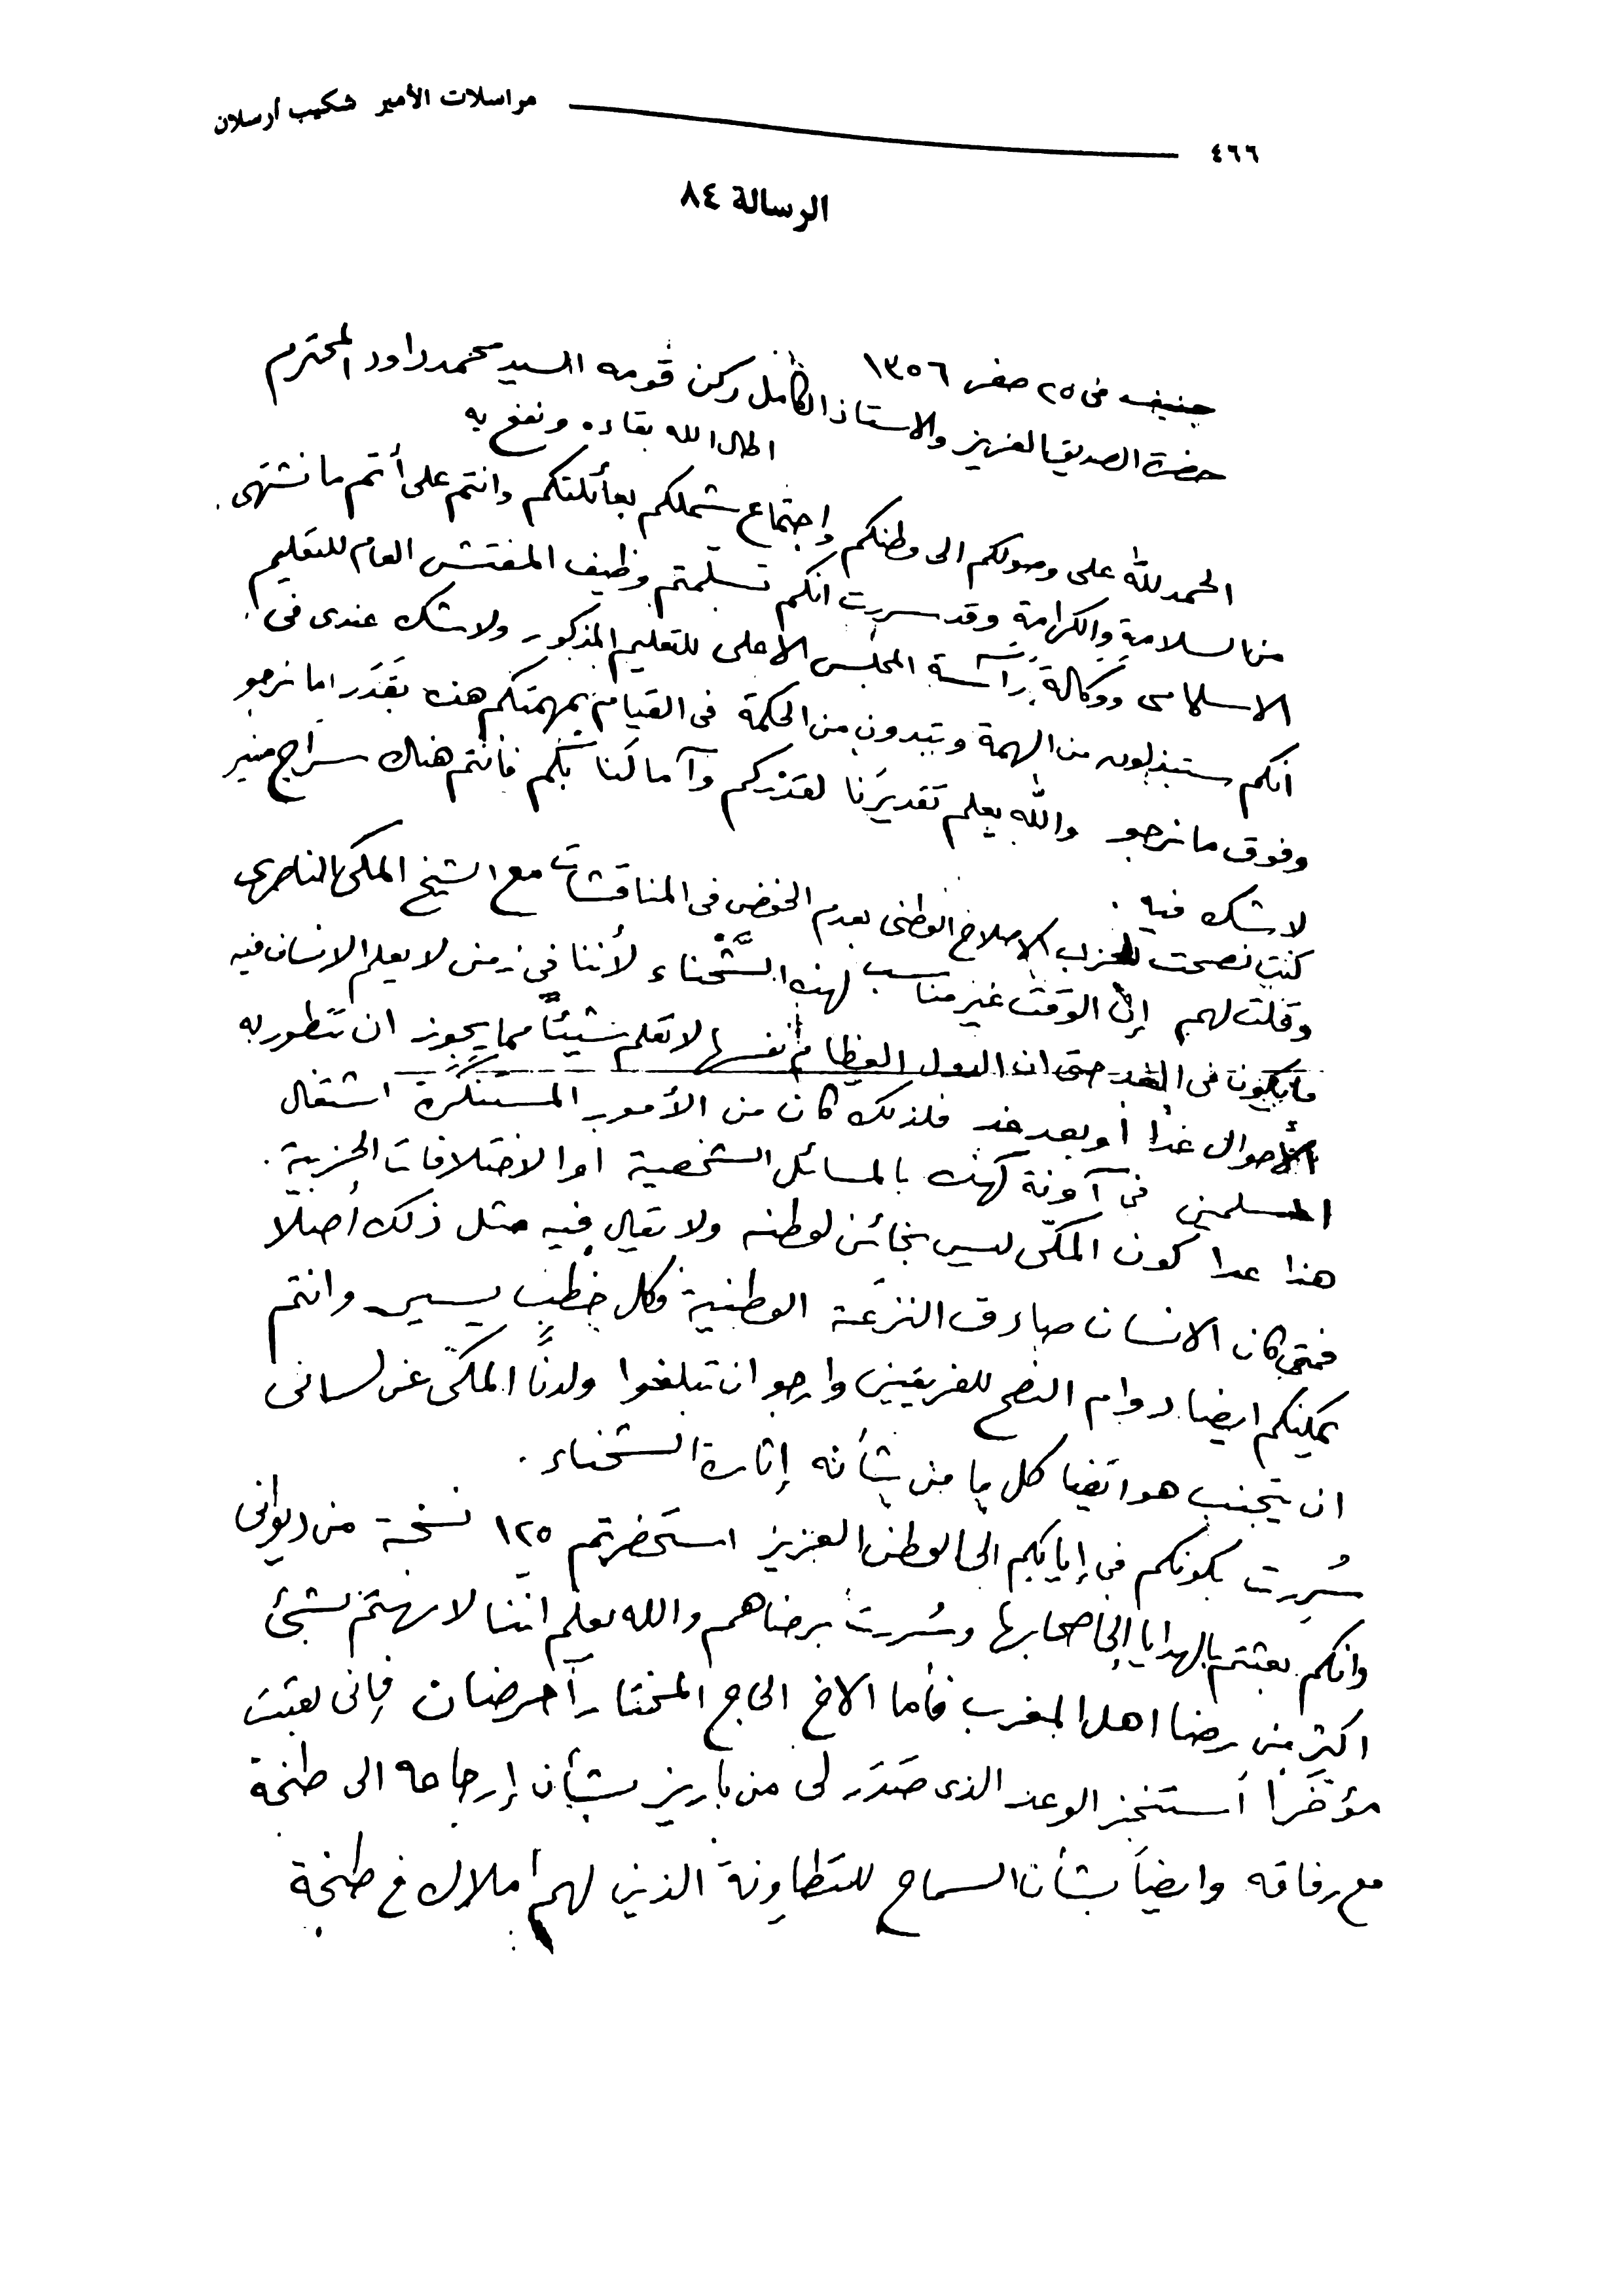 ٤٦٦ مراسلات الأمير شكيب أرسلان
الرسالة ٨٤
جنيف فى ٢٥ صفر ١٣٥٦
حضرة الصديق العزيز والاستاذ الكامل ركن قومه السيد محمد داود المحترم
اطال الله بقاءه ونفع به
الحمد لله على وصولكم الى وطنكم واجتماع شملكم بعائلتكم وانتم على أتم ما نشتهى.
من السلامة والكرامة وقد سررت انكم تسلمتم وظيف المفتش العام للتعليم
الاسلامى ووكالة رآسة المجلس الاعلى للتعليم المذكور ولا شك عندى فى
انكم ستبذلون من الهمة وتبدون من الحكمة فى القيام بمهمتكم هذه بقدر ما نرجو
وفوق ما نرجو والله يعلم تقديرنا لقدركم وآمالنا بكم فأنتم هناك سراج منير
لا شك فيه.
كنت نصحت لحزب الاصلاح الوطنى بعدم الخوض فى المناقشات مع الشيخ المكى الناصرى
وقلت لهم إن الوقت غير مناسب لهذه الشحناء لأننا فى زمن لا يعلم الانسان فيه
ما يكون فى الغد حتى ان الدول العظام نفسها لا تعلم شيئاً مما يجوز ان تتطور به
الأحوال غدا أو بعد غد فلذلك كان من الأمور المستنكرة اشتغال
المسلمين فى آونة كهذه بالمسائل الشخصية او الاختلافات الحزبية.
هذا عدا كون المكّى ليس بخائن لوطنه ولا يقال فيه مثل ذلك أصلا
فمتى كان الانسان صادق النزعة الوطنية فكل خطب يسير وانتم
يمكنكم ايضا دوام النصح للفريقين وارجو ان تبلغوا ولدنا المكّى عن لسانى
ان يتجنب هو ايضا كل ما من شأنه إثارة الشحناء.
سُررت بكونكم فى إيابكم الى الوطن العزيز استحضرتم ١٢٥ نسخة من ديوانى
وانكم بعثتم بالهدايا إلى أصحابها وسُررت برضاهم والله يعلم اننا لا نهتم بشئ
اكثر من رضا اهل المغرب فأما الاخ الحاج المختار أحرضان فإنى بعثت
مؤخرا أستنجز الوعد الذى صَدَر لى من باريز بشأن إرجاعه الى طنجة
مع رفاقه وايضاً بشأن السماح للتطاونة الذين لهم أملاك فى طنجة